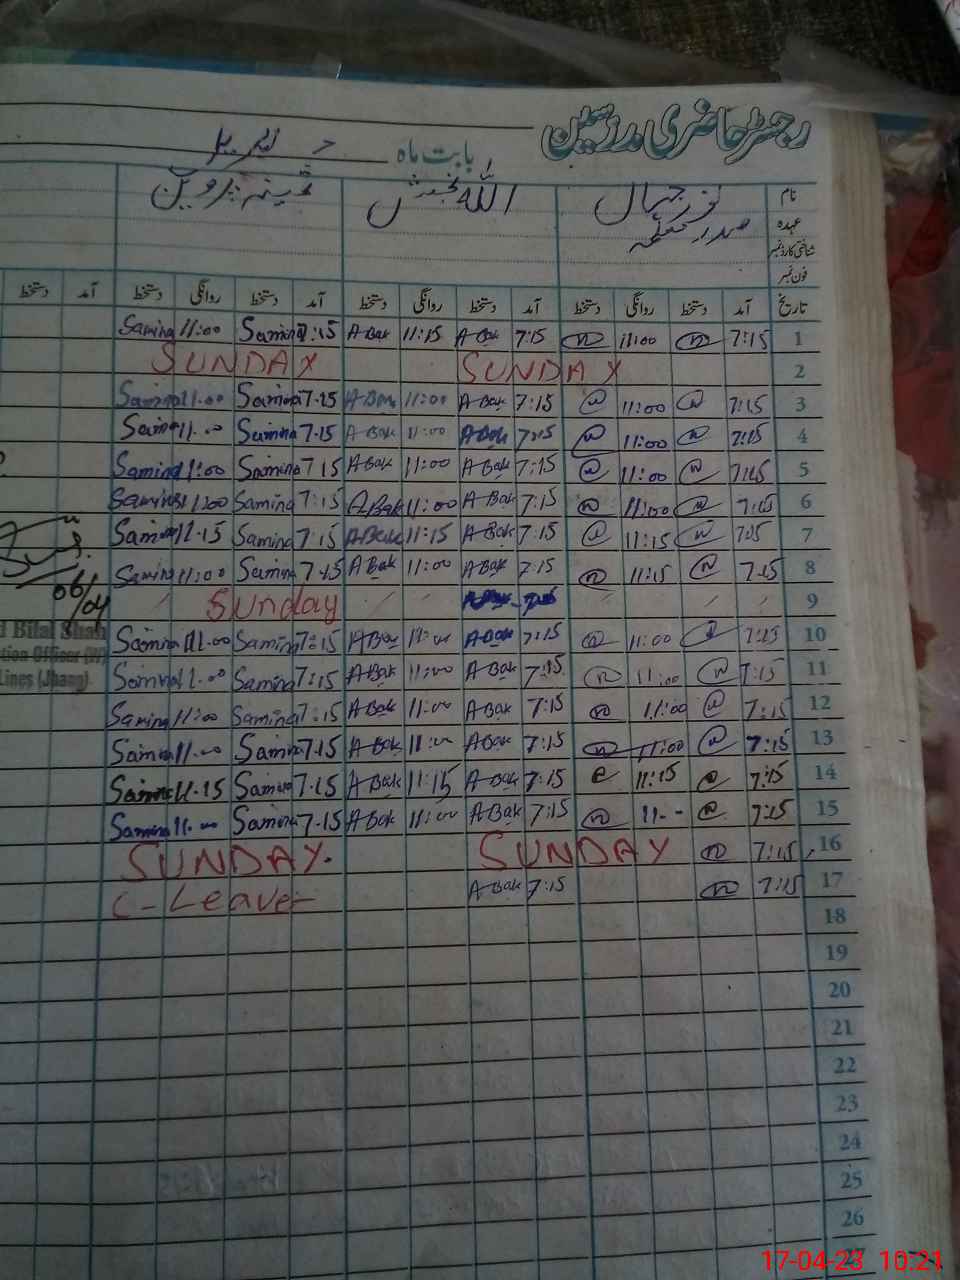 رجسٹر حاضری مدرسین
بابت ماہ
نام نور جہاں اللہ بخش ثمینہ پروین
عہدہ صدر معلمہ
شناختی کارڈ نمبر
فون نمبر
تاریخ آمد دستخط روانگی دستخط آمد دستخط روانگی دستخط آمد دستخط روانگی دستخط آمد دستخط
Samina 11:00 Samina 7:15 A-Bak 11:15 A-Bak 7:15 11:00 7:15 1
SUNDAY SUNDAY 2
Samina 11.00 Samina 7.15 A-Bak 11:00 A-Bak 7:15 11:00 7:15 3
Samina 11.00 Samina 7.15 A-Bak 11:00 A-Bak 7:15 11:00 7:15 4
Samina 11:00 Samina 7 15 A-Bak 11:00 A-Bak 7:15 11:00 7:15 5
Samina 11:00 Samina 7:15 A-Bak 11:00 A-Bak 7:15 11:00 7:15 6
Samina 11.15 Samina 7.15 A-Bak 11:15 A-Bak 7:15 11:15 7:15 7
Samina 11:00 Samina 7.15 A-Bak 11:00 A-Bak 7:15 11:15 7:15 8
06/04 Sunday 9
d Bilal Shah Samina 11.00 Samina 7:15 A-Bak 11:00 A-Bak 7:15 11:00 7:15 10
tion Officer Samina 11.00 Samina 7:15 A-Bak 11:00 A-Bak 7:15 11:00 7:15 11
Lines (Jhang) Samina 11:00 Samina 7:15 A-Bak 11:00 A-Bak 7:15 11:00 7:15 12
Samina 11.00 Samina 7.15 A-Bak 11:00 A-Bak 7:15 11:00 7:15 13
Samina 11.15 Samina 7.15 A-Bak 11:15 A-Bak 7:15 11:15 7:15 14
Samina 11.00 Samina 7.15 A-Bak 11:00 A-Bak 7:15 11-- 7:15 15
SUNDAY. SUNDAY 7:15 16
C-Leave A-Bak 7:15 7:15 17
18
19
20
21
22
23
24
25
26
27
17-04-23 10:21